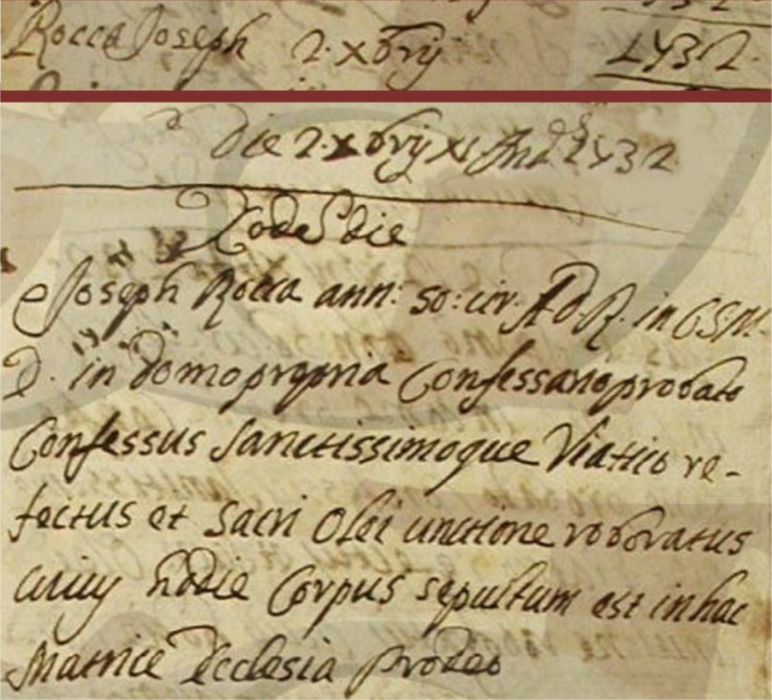 Rocca Joseph 2. Xbrij 1732.
Die 2. Xbrij XI Ind. 1732
Eode die
Joseph Rocca ann: 50: cir. A.D.R. in C.S.M.
D. in domo propria Confessario probato
Confessus Sanctissimoque Viatico re-
fectus et sacri Olei unctione roboratus
cuius hodie Corpus sepultum est in hac
Matrice Ecclesia pro Deo